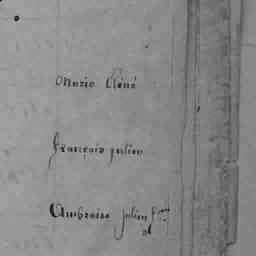 Marie René
François julien
Ambroise julien